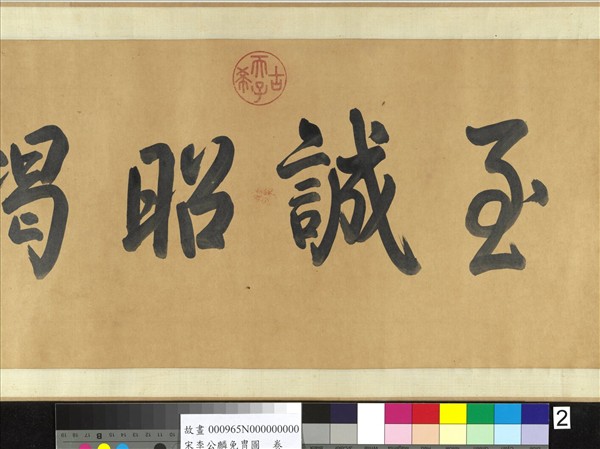 至誠昭
古希天子
故畫 000965N000000000
宋李公麟免冑圖 卷
2